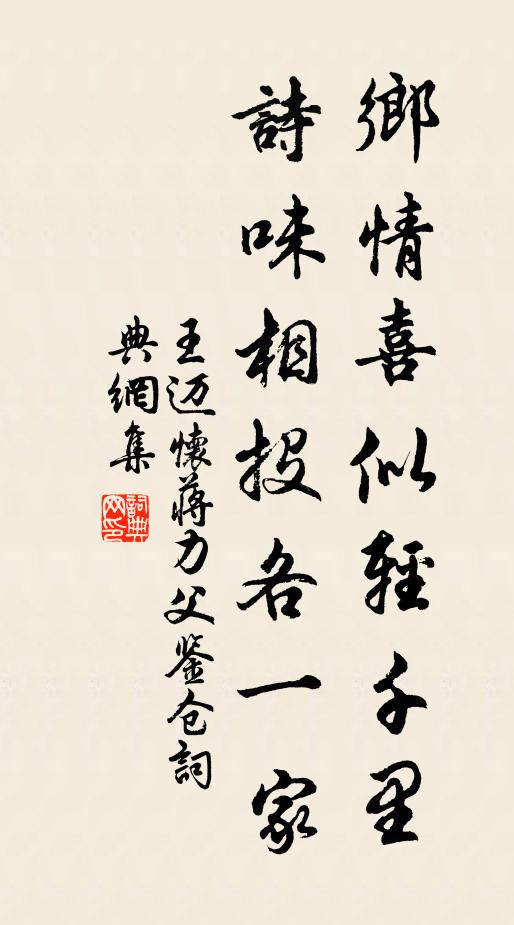 鄉情喜似輕千里
詩味相投各一家
王迈懷蔣力父鉴仓詞
典網集
詞典
网印